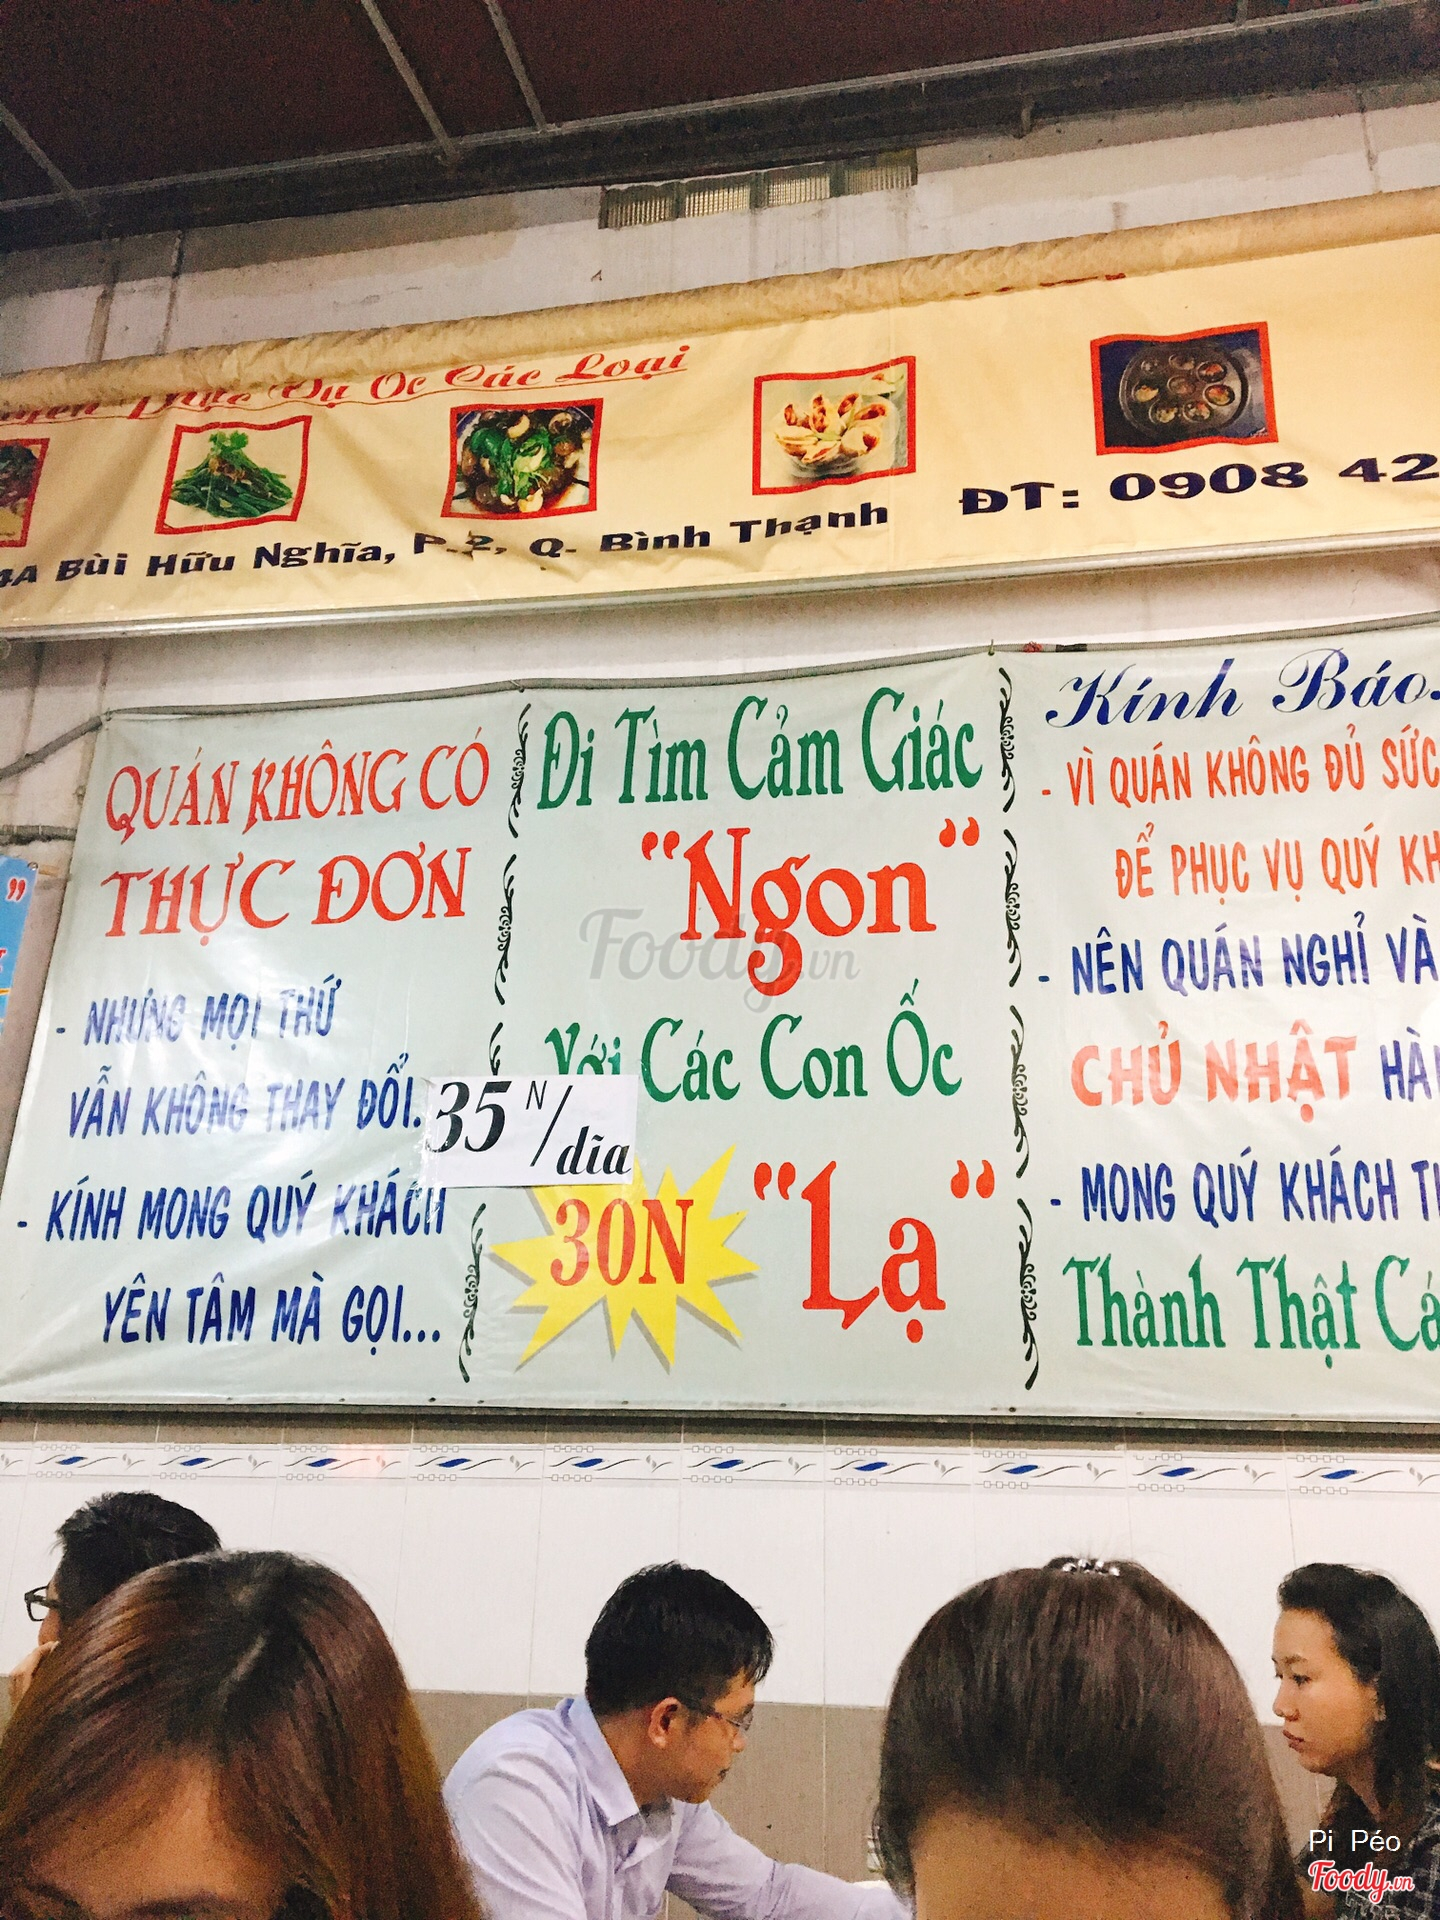 Phục Vụ Ốc Các Loại
4A Bùi Hữu Nghĩa, P.2, Q. Bình Thạnh
ĐT: 0908 42
QUÁN KHÔNG CÓ
THỰC ĐƠN
- NHƯNG MỌI THỨ
VẪN KHÔNG THAY ĐỔI.
- KÍNH MONG QUÝ KHÁCH
YÊN TÂM MÀ GỌI...
Đi Tìm Cảm Giác
"Ngon"
Với Các Con Ốc
35N/dĩa
30N
"Lạ"
Kính Báo
- VÌ QUÁN KHÔNG ĐỦ SỨC
ĐỂ PHỤC VỤ QUÝ KH
- NÊN QUÁN NGHỈ VÀ
CHỦ NHẬT HÀ
- MONG QUÝ KHÁCH TH
Thành Thật Cả
Foody.vn
Pi Péo
Foody.vn